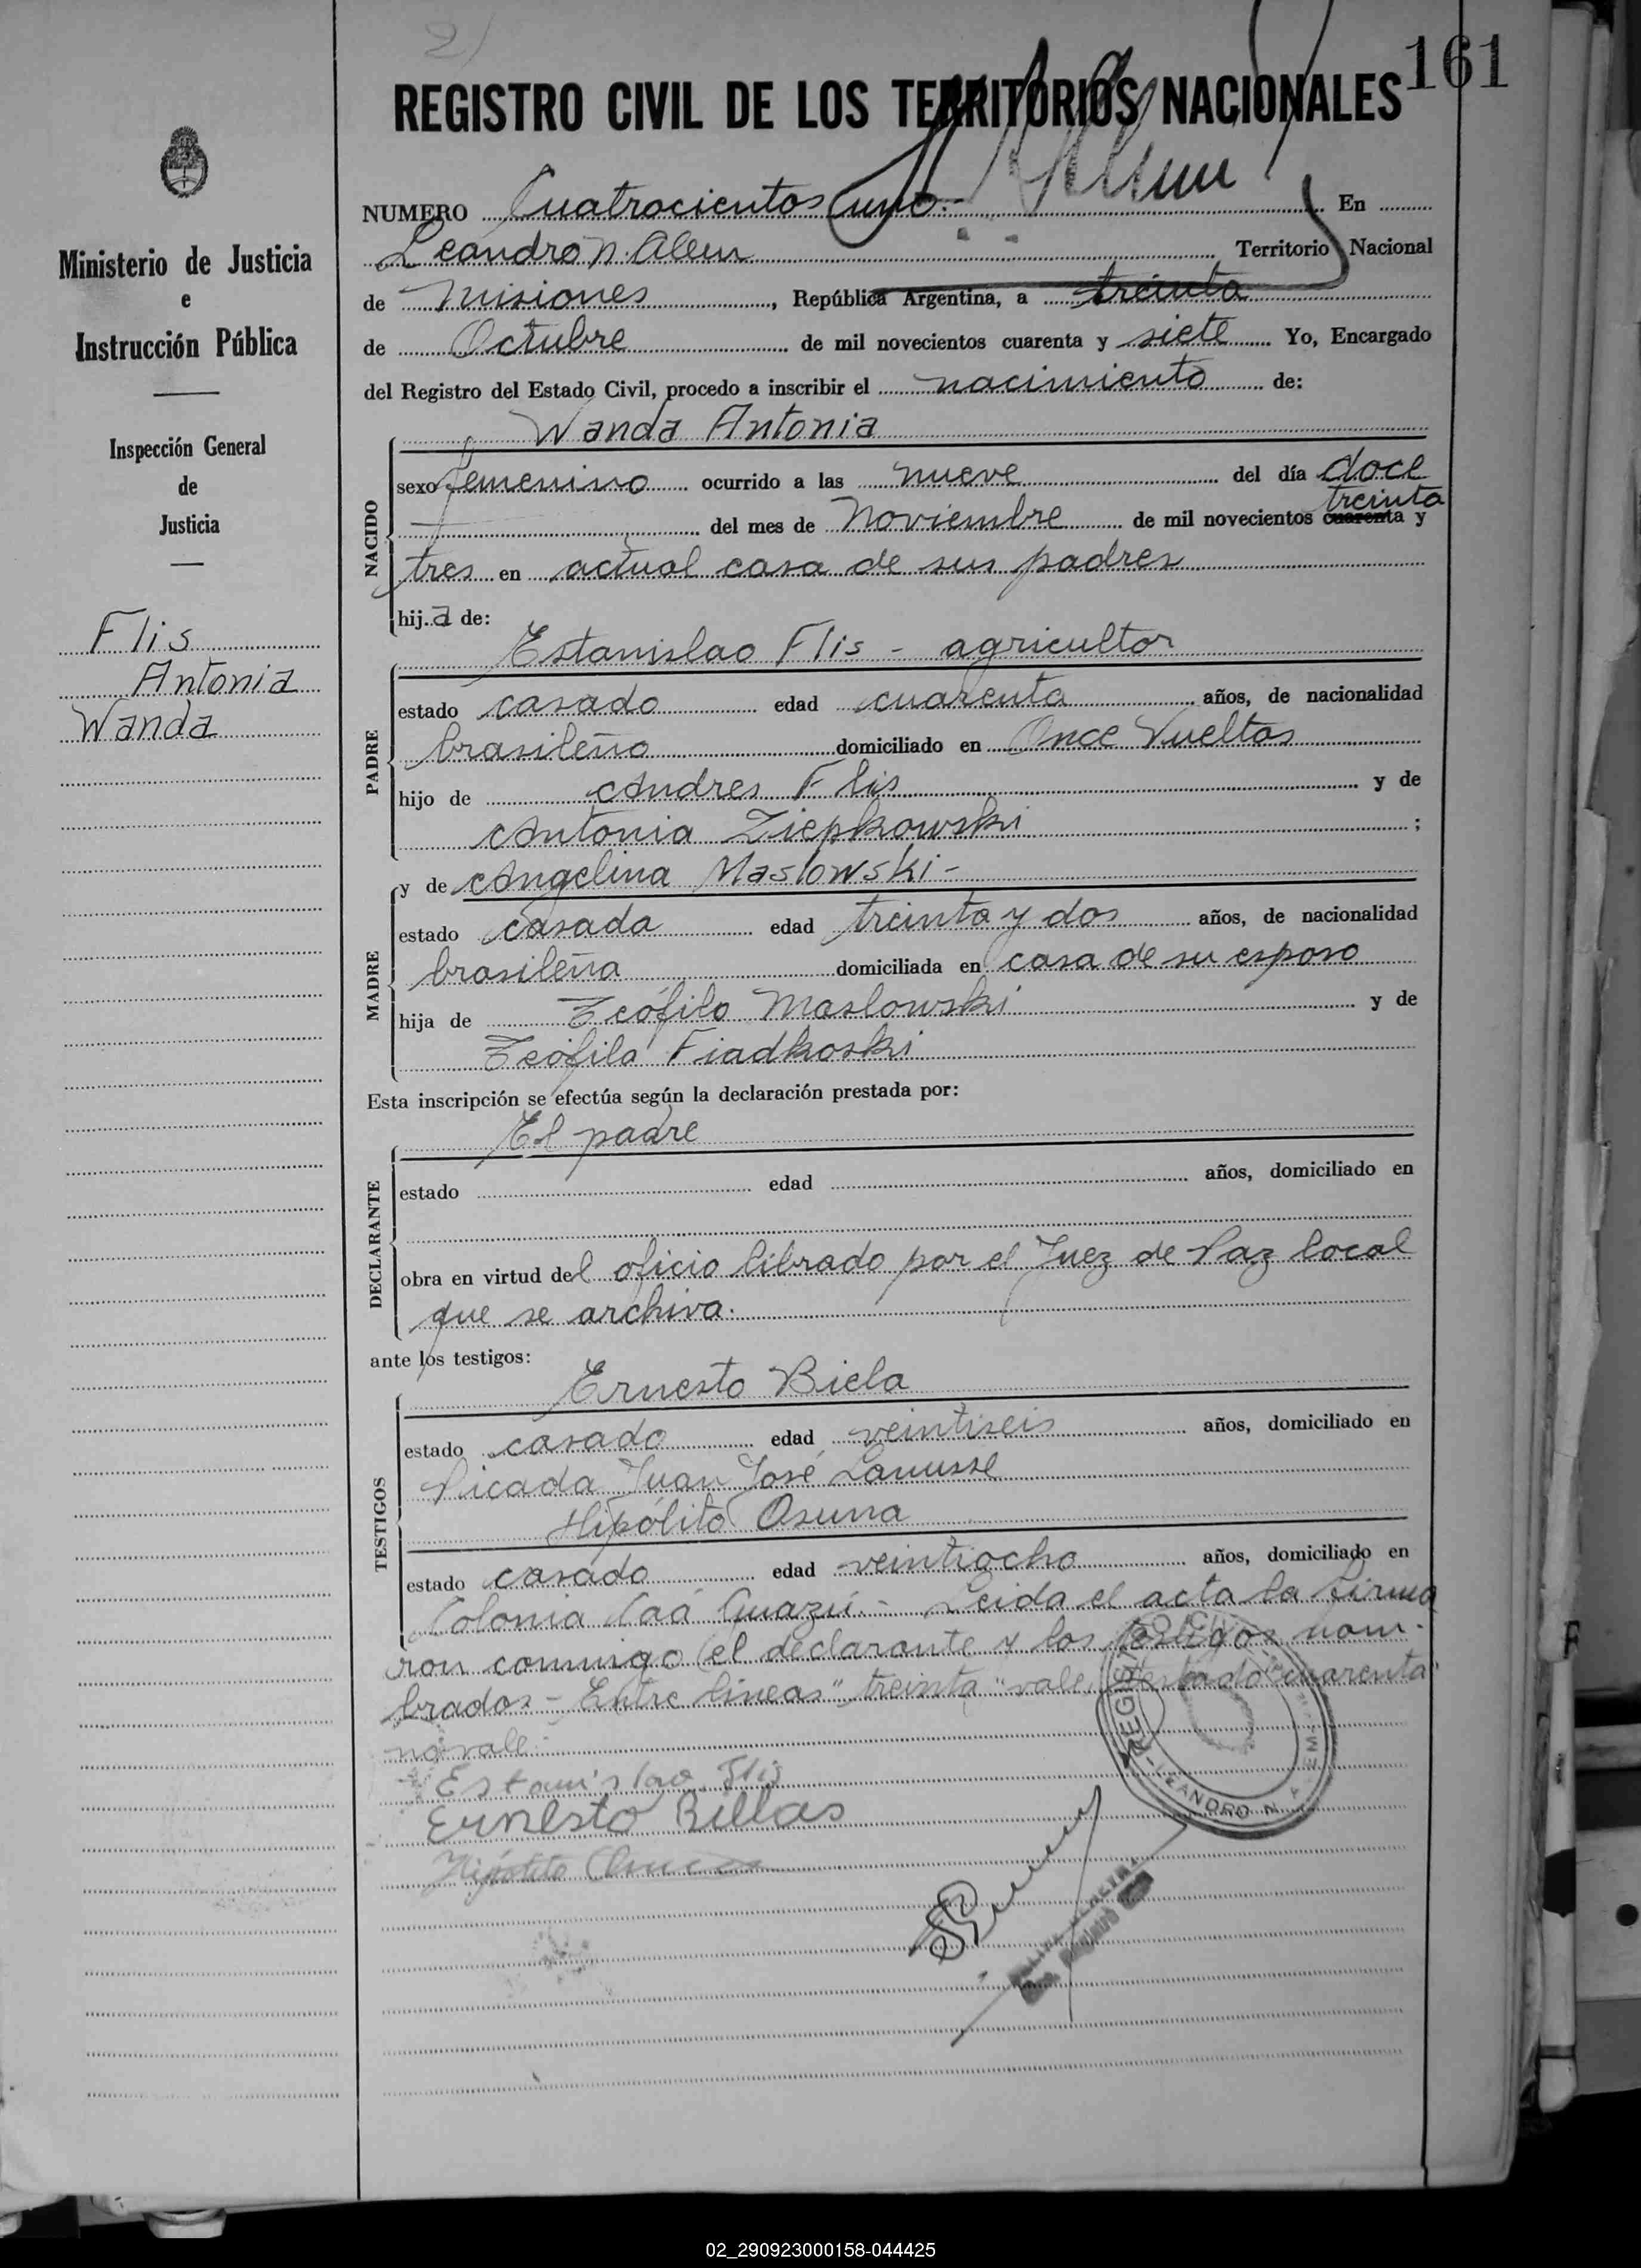 2)
161
REGISTRO CIVIL DE LOS TERRITORIOS NACIONALES
Ministerio de Justicia
e
Instrucción Pública
Inspección General
de
Justicia
Flis
Antonia
Wanda
NUMERO Cuatrocientos uno.- En
Leandro N. Alem Territorio Nacional
de Misiones, República Argentina, a treinta
de Octubre de mil novecientos cuarenta y siete Yo, Encargado
del Registro del Estado Civil, procedo a inscribir el nacimiento de:
Wanda Antonia
NACIDO
sexo femenino ocurrido a las nueve del día doce
treinta
del mes de Noviembre de mil novecientos cuarenta y
tres en actual casa de sus padres
hija de:
Estanislao Flis - agricultor
PADRE
estado casado edad cuarenta años, de nacionalidad
brasileño domiciliado en Once Vueltas
hijo de Andres Flis y de
Antonia Ziepkowski ;
y de Angelina Maslowski -
MADRE
estado casada edad treinta y dos años, de nacionalidad
brasileña domiciliada en casa de su esposo
hija de Teófilo Maslowski y de
Teófila Fiadkoski
Esta inscripción se efectúa según la declaración prestada por:
El padre
DECLARANTE
estado edad años, domiciliado en
obra en virtud del oficio librado por el Juez de Paz local
que se archiva.
ante los testigos:
Ernesto Biela
TESTIGOS
estado casado edad veintiseis años, domiciliado en
Picada Juan José Lanusse
Hipólito Osuna
estado casado edad veintiocho años, domiciliado en
Colonia Caá Guazú.- Leida el acta la firma
ron conmigo el declarante y los testigos nom-
brados - Entre lineas "treinta" vale, testado "cuarenta"
no vale.
Estanislao Flis
Ernesto Billas
Hipólito
REGISTRO CIVIL
LEANDRO N. ALEM
02_290923000158-044425